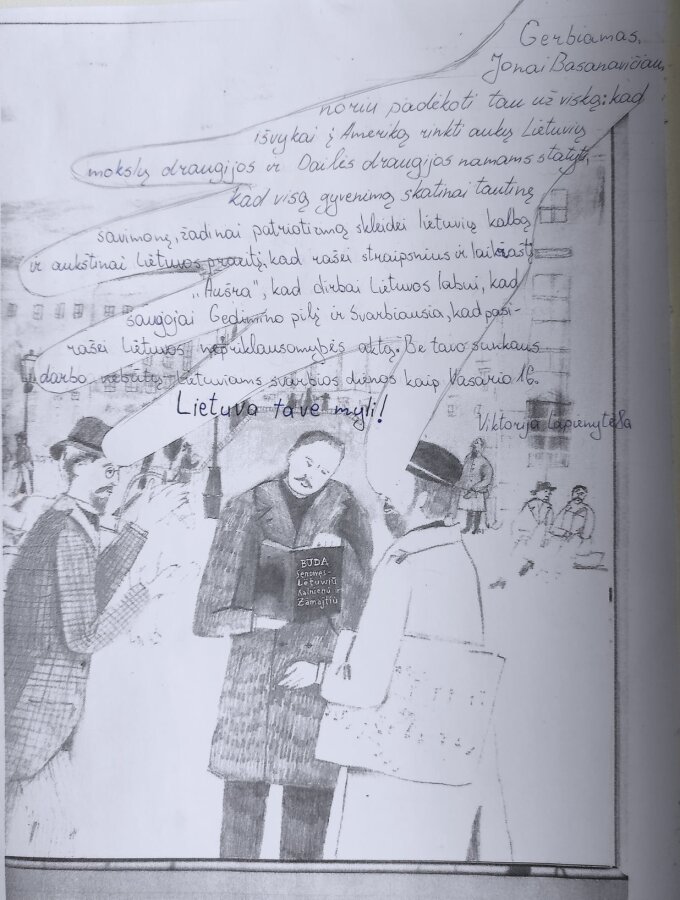 Gerbiamas,
Jonai Basanavičiau,
noriu padėkoti tau už viską: kad
išvykai į Ameriką rinkti aukų Lietuvių
mokslų draugijos ir Dailės draugijos namams statyti,
kad visą gyvenimą skatinai tautinę
savimonę, žadinai patriotizmą skleidei lietuvių kalbą
ir aukštinai Lietuvos praeitį, kad rašei straipsnius ir laikraštį
„Aušra", kad dirbai Lietuvos labui, kad
saugojai Gedimino pilį ir svarbiausia, kad pasi-
rašei Lietuvos nepriklausomybės aktą. Be tavo sunkaus
darbo nebūtų Lietuviams svarbios dienos kaip Vasario 16.
Lietuva tave myli!
Viktorija 8a
BUDA
Senowēs-
Lëtuwiû
Kalnienû ir
Żámajtiû